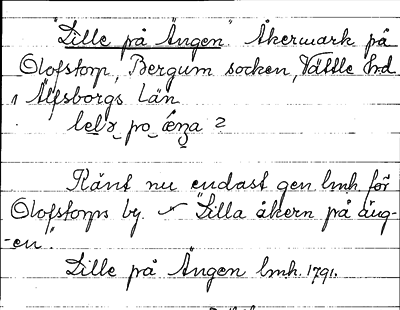 "Lille på Ängen" Åkermark på
Olofstorp, Bergum socken, Vättle hrd
i Älfsborgs Län
Känt nu endast gen lmh. för
Olofstorps by. "Lilla åkern på äng-
-en".
Lille på Ängen lmh. 1791.